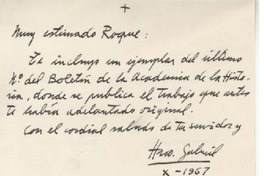 +
Muy estimado Roque:
Te incluyo un ejemplar del último
Nº del Boletín de la Academia de la Histo-
ria, donde se publica el trabajo que antes
te había adelantado original.
Con el cordial saludo de tu servidor y
Hno. Gabriel
X-1967